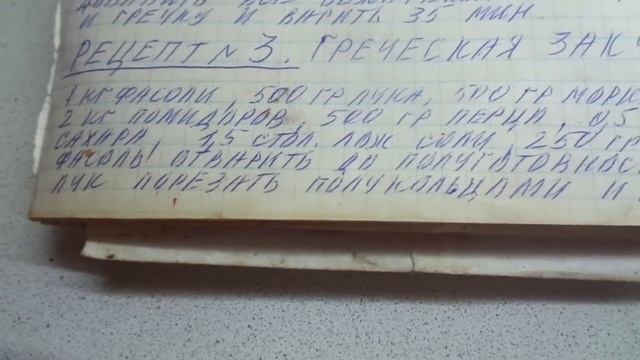 И ГРЕЧКУ И ВАРИТЬ 35 МИН.
РЕЦЕПТ N 3. ГРЕЧЕСКАЯ ЗАК
1 КГ ФАСОЛИ, 500 ГР ЛУКА, 500 ГР МОРК
2 КГ ПОМИДАРОВ, 500 ГР ПЕРЦА, 0,5
САХАРА 1,5 СТОЛ. ЛОЖ СОЛИ, 250 ГР
ФАСОЛЬ ОТВАРИТЬ ДО ПОЛУГОТОВНОС
ЛУК ПОРЕЗАТЬ ПОЛУКОЛЬЦАМИ И